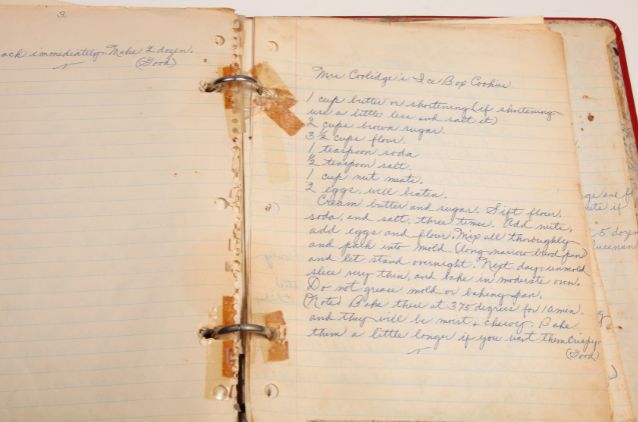 3
ack immediately. Make 2 dozen.
(Good)
Mrs Coolidge's Ice Box Cookies
1 cup butter or shortening (if shortening
use a little less and salt it)
2 cups brown sugar.
3 ½ cups flour.
1 teaspoon soda
½ teaspoon salt.
1 cup nut meats.
2 eggs, well beaten.
Cream butter and sugar. Sift flour,
soda, and salt, three times. Add nuts,
add eggs and flour. Mix all thoroughly
and pack into mold (long narrow bread pan
and let stand overnight. Next day, unmold
slice very thin, and bake in moderate oven.
Do not grease mold or baking pan.
(Note) Bake these at 375 degrees for 10 min.
and they will be moist & chewey. Bake
them a little longer if you want them crispy
(Good)